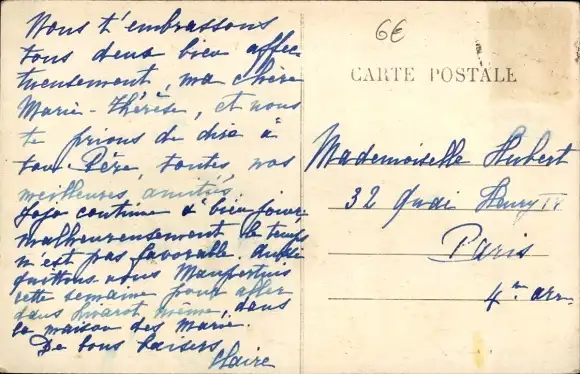 Nous t'embrassons
tous deux bien affec
tueusement, ma chère
Marie-Thérèse, et nous
te prions de dire à
ton Père, toutes nos
meilleures amitiés.
Jojo continue à bien jouer,
malheureusement le temps
n'est pas favorable. Aussi
quittons nous Maupertuis
cette semaine pour aller
dans Livarot même, dans
la maison des Marie.
De bons baisers
Claire
6€
CARTE POSTALE
Mademoiselle Hubert
32 Quai Henry IV
Paris
4me arr.